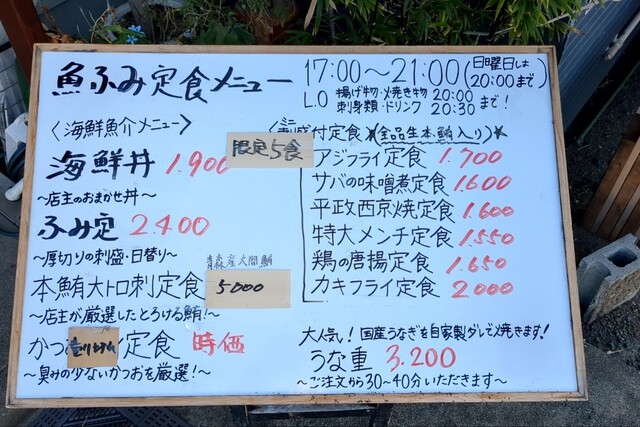 魚ふみ定食メニュー
17:00〜21:00(日曜日は20:00まで)
L.O 揚げ物・焼き物 20:00
刺身類・ドリンク 20:30 まで!
〈海鮮魚介メニュー〉
海鮮丼 1.900
限定5食
〜店主のおまかせ丼〜
ふみ定 2400
〜厚切りの刺盛・日替り〜
青森産大間鮪
本鮪大トロ刺定食 5000
〜店主が厳選したとろける鮪!〜
かつ 定食 時価
〜臭みの少ないかつおを厳選!〜
刺盛付定食 (全品生本鮪入り)
アジフライ定食 1.700
サバの味噌煮定食 1.600
平政西京焼定食 1.600
特大メンチ定食 1.550
鶏の唐揚定食 1.650
カキフライ定食 2000
大人気! 国産うなぎを自家製ダレで焼きます!
うな重 3.200
〜ご注文から30〜40分いただきます〜